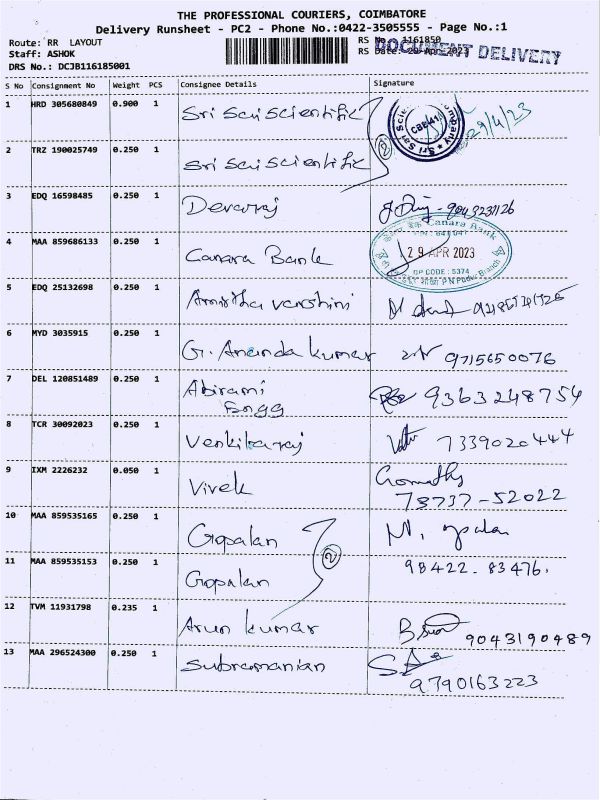 THE PROFESSIONAL COURIERS, COIMBATORE
Delivery Runsheet - PC2 - Phone No.:0422-3505555 - Page No.:1
Route: RR LAYOUT
Staff: ASHOK
DRS No.: DCJB116185001
RS No. 1161850
RS Date: 29-Apr-2023
DOCUMENT DELIVERY
S No Consignment No Weight PCS Consignee Details Signature
1 HRD 305680849 0.900 1 Sri Sai Scientific 29/4/23
2 TRZ 190025749 0.250 1 Sri Sai Scientific
2
3 EDQ 16598485 0.250 1 Devaraj 9043231126
4 MAA 859686133 0.250 1 Canara Bank
Canara Bank
29 APR 2023
DP CODE : 5374
P N Pudur Branch
5 EDQ 25132698 0.250 1 Amirtha varshini
6 MYD 3035915 0.250 1 G. Ananda kumar 9715650076
7 DEL 120851489 0.250 1 Abirami Engg 9363248754
8 TCR 30092023 0.250 1 Venkitaraj 7339020444
9 IXM 2226232 0.050 1 Vivek Gomathy
73737-52022
10 MAA 859535165 0.250 1 Gopalan
11 MAA 859535153 0.250 1 Gopalan 98422-83476.
2
12 TVM 11931798 0.235 1 Arun kumar 9043190489
13 MAA 296524300 0.250 1 Subramanian
9790163223